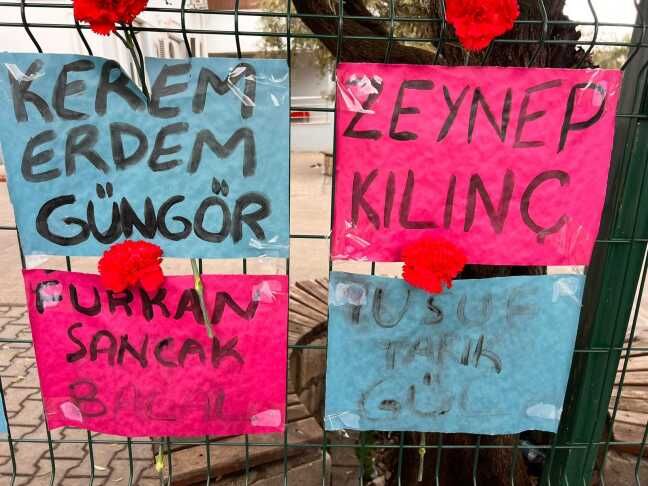 KEREM
ERDEM
GÜNGÖR
ZEYNEP
KILINÇ
FURKAN
SANCAK
BALAL
YUSUF
TARIK
GÜÇ